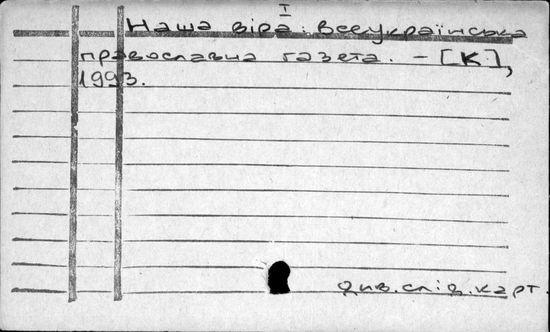 I
Наша віра: Всеукраїнська
православна газета. – [К.],
1993.
див.слід.карт.